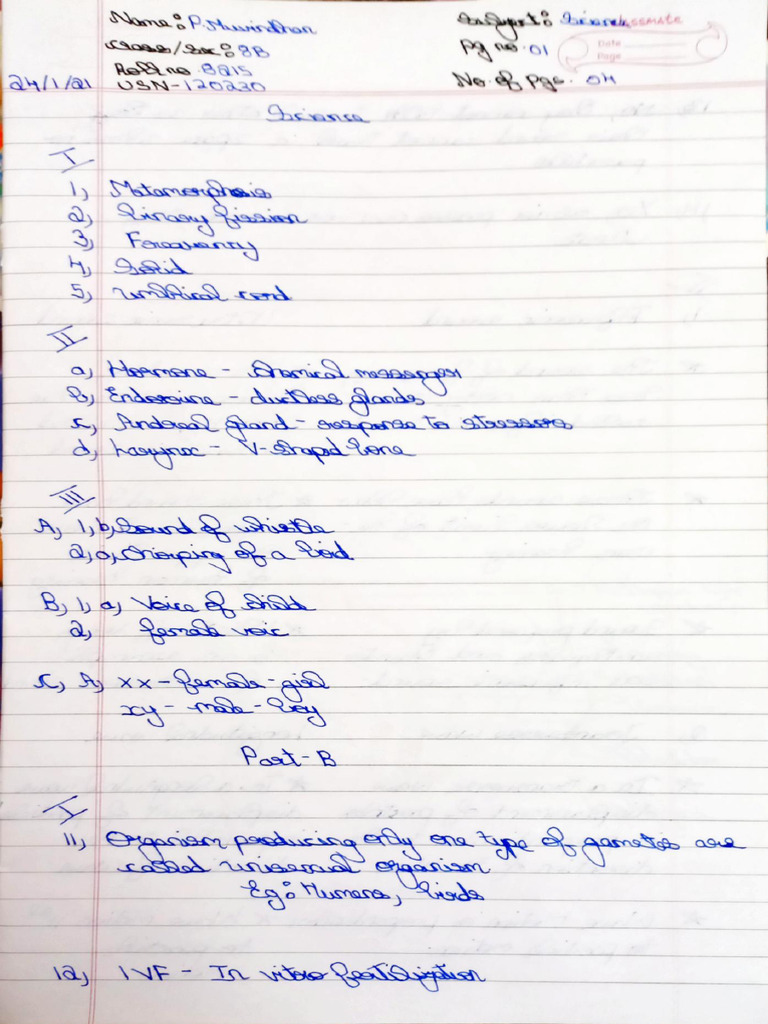 Name: P. Muvindhan
Subject: Science
classmate
Class/Sec: 8B
Pg no. 01
Date
Page
Roll no 8215
No. of Pgs. 04
24/1/21
USN-120230
Science
I
1) Metamorphosis
2) binary fission
3) Frequency
4) Solid
5) umbilical cord
II
a) Hormone - chemical messenger
b) Endocrine - ductless glands
c) Andreal gland - response to stressors
d) Larynx - V-shaped bone
III
A) 1) b) Sound of whistle
2) a) Chirping of a bird
B) 1) a) Voice of child
2) female voic
C) A) xx - female - girl
xy - male - boy
Part-B
I
11) Organism producing only one type of gametes are
called unisexual organism
Eg: Humans, birds
12) IVF - In vitro fertilization